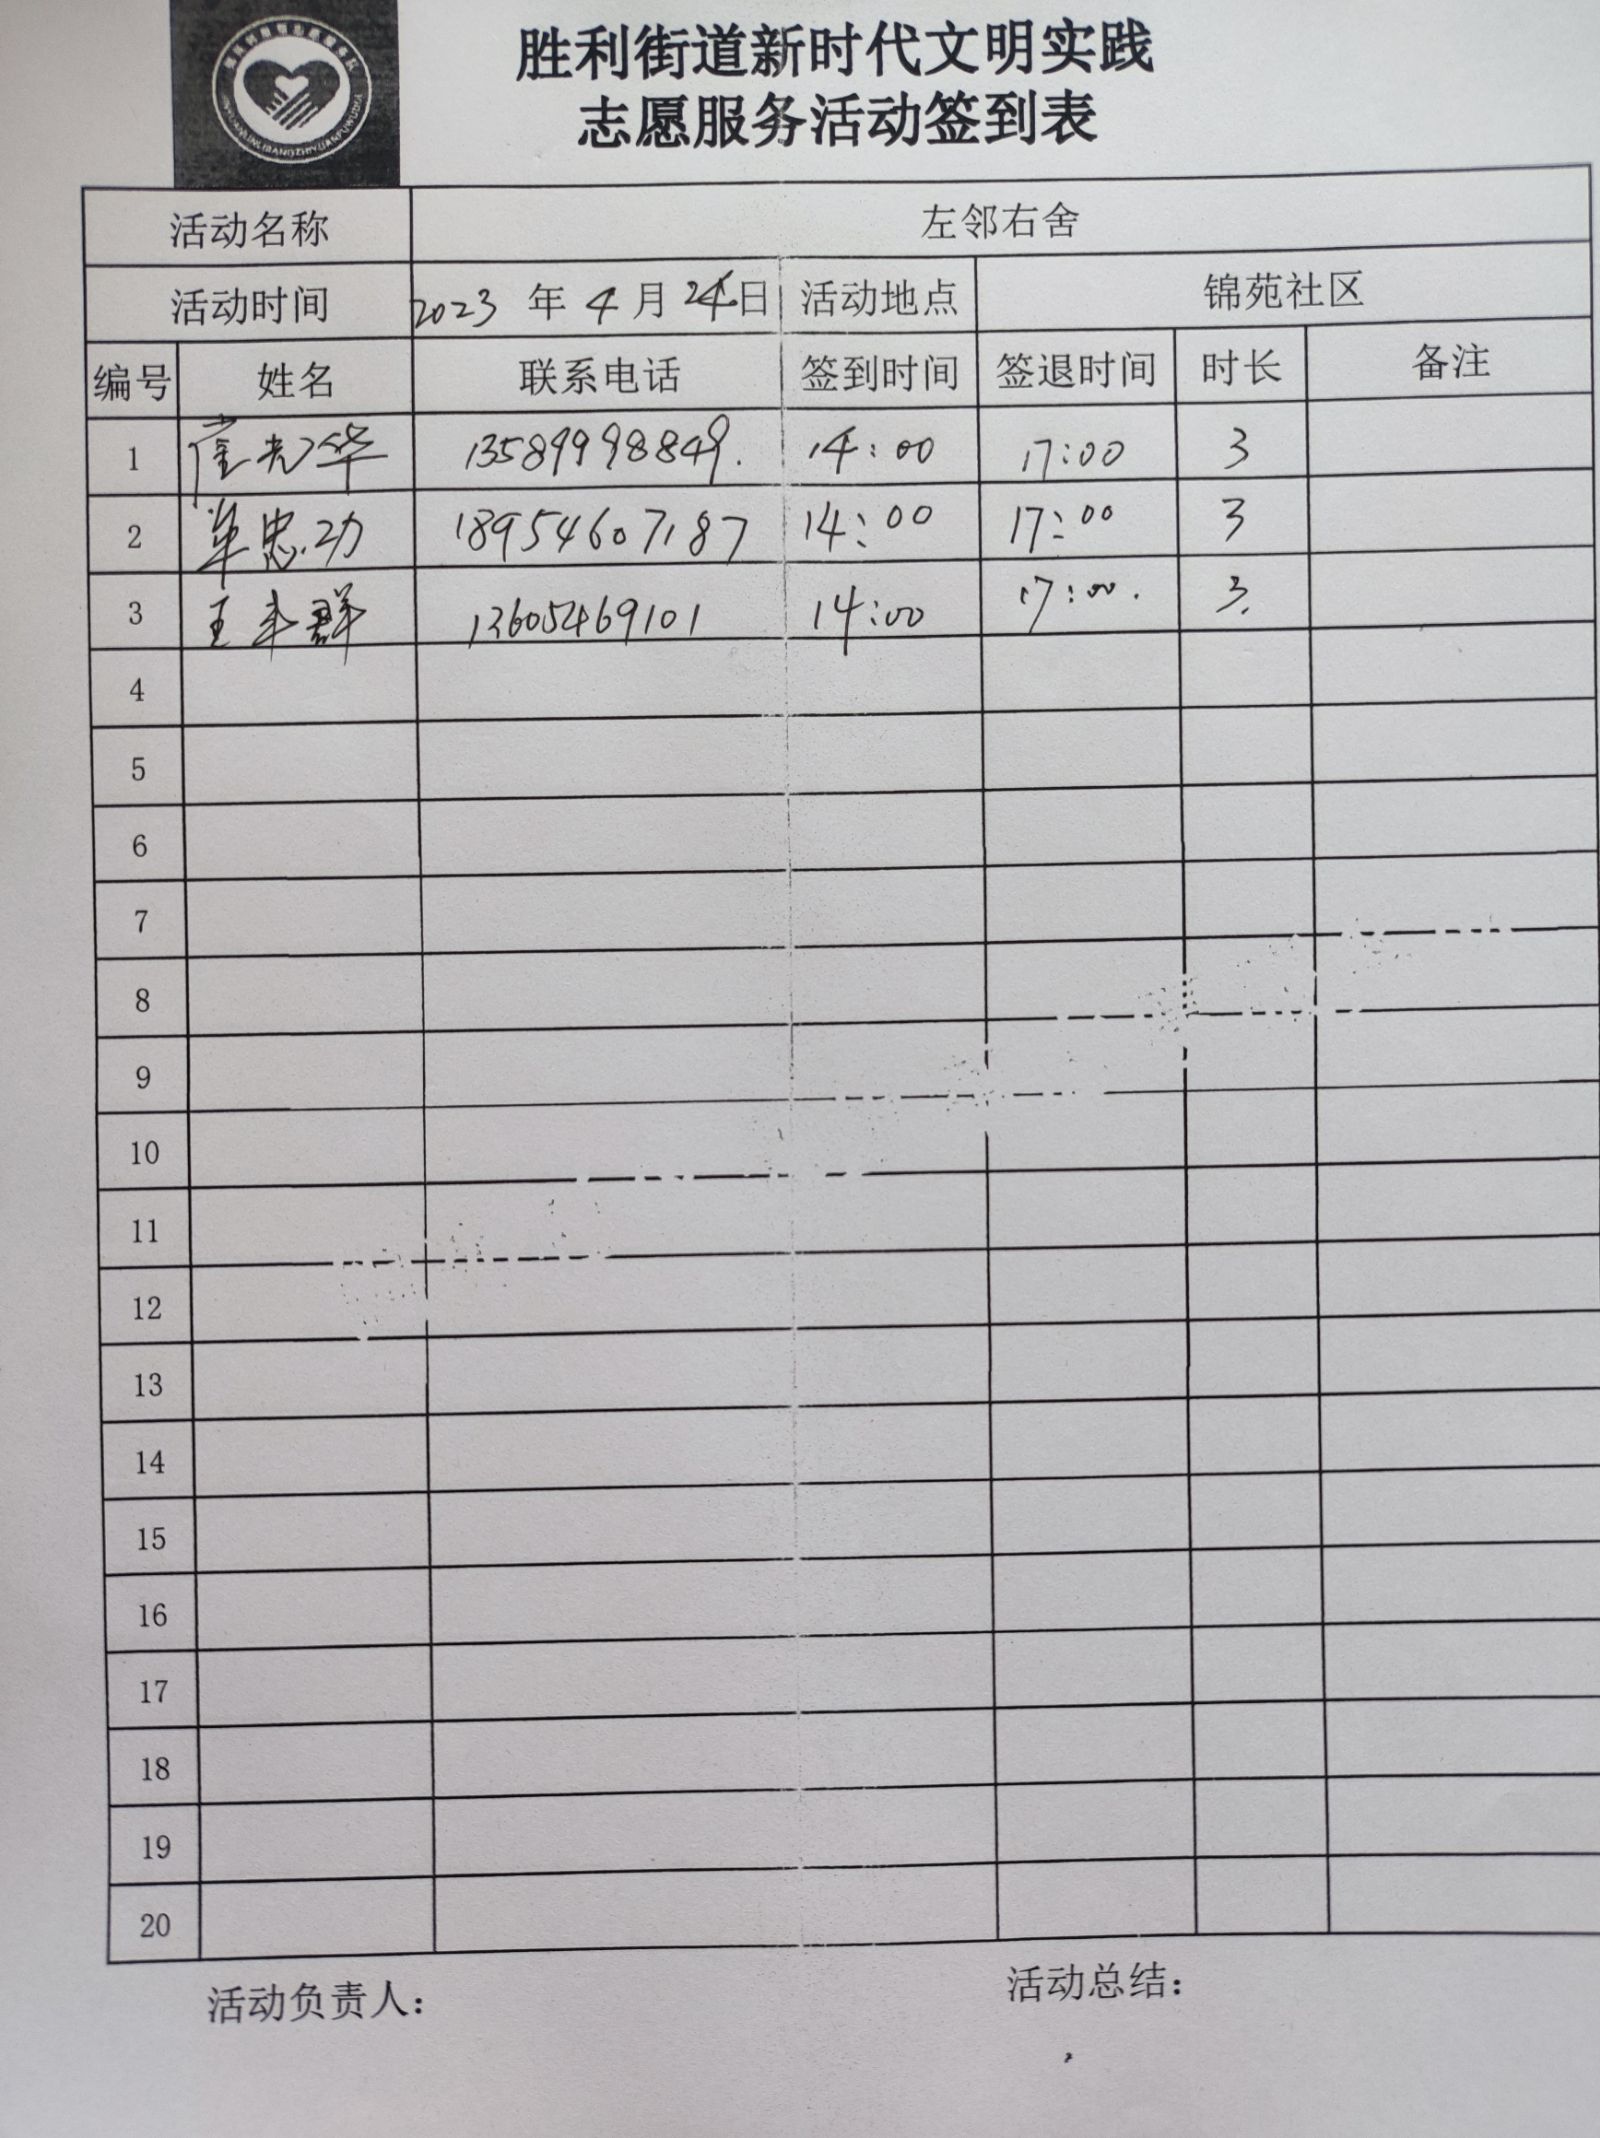 胜利街道新时代文明实践
志愿服务活动签到表
活动名称 左邻右舍
活动时间 2023 年 4 月 24 日 活动地点 锦苑社区
编号 姓名 联系电话 签到时间 签退时间 时长 备注
1 崔光华 13589998849. 14:00 17:00 3
2 单忠功 18954607187 14:00 17:00 3
3 王丰群 13605469101 14:00 17:00. 3.
4
5
6
7
8
9
10
11
12
13
14
15
16
17
18
19
20
活动负责人: 活动总结: